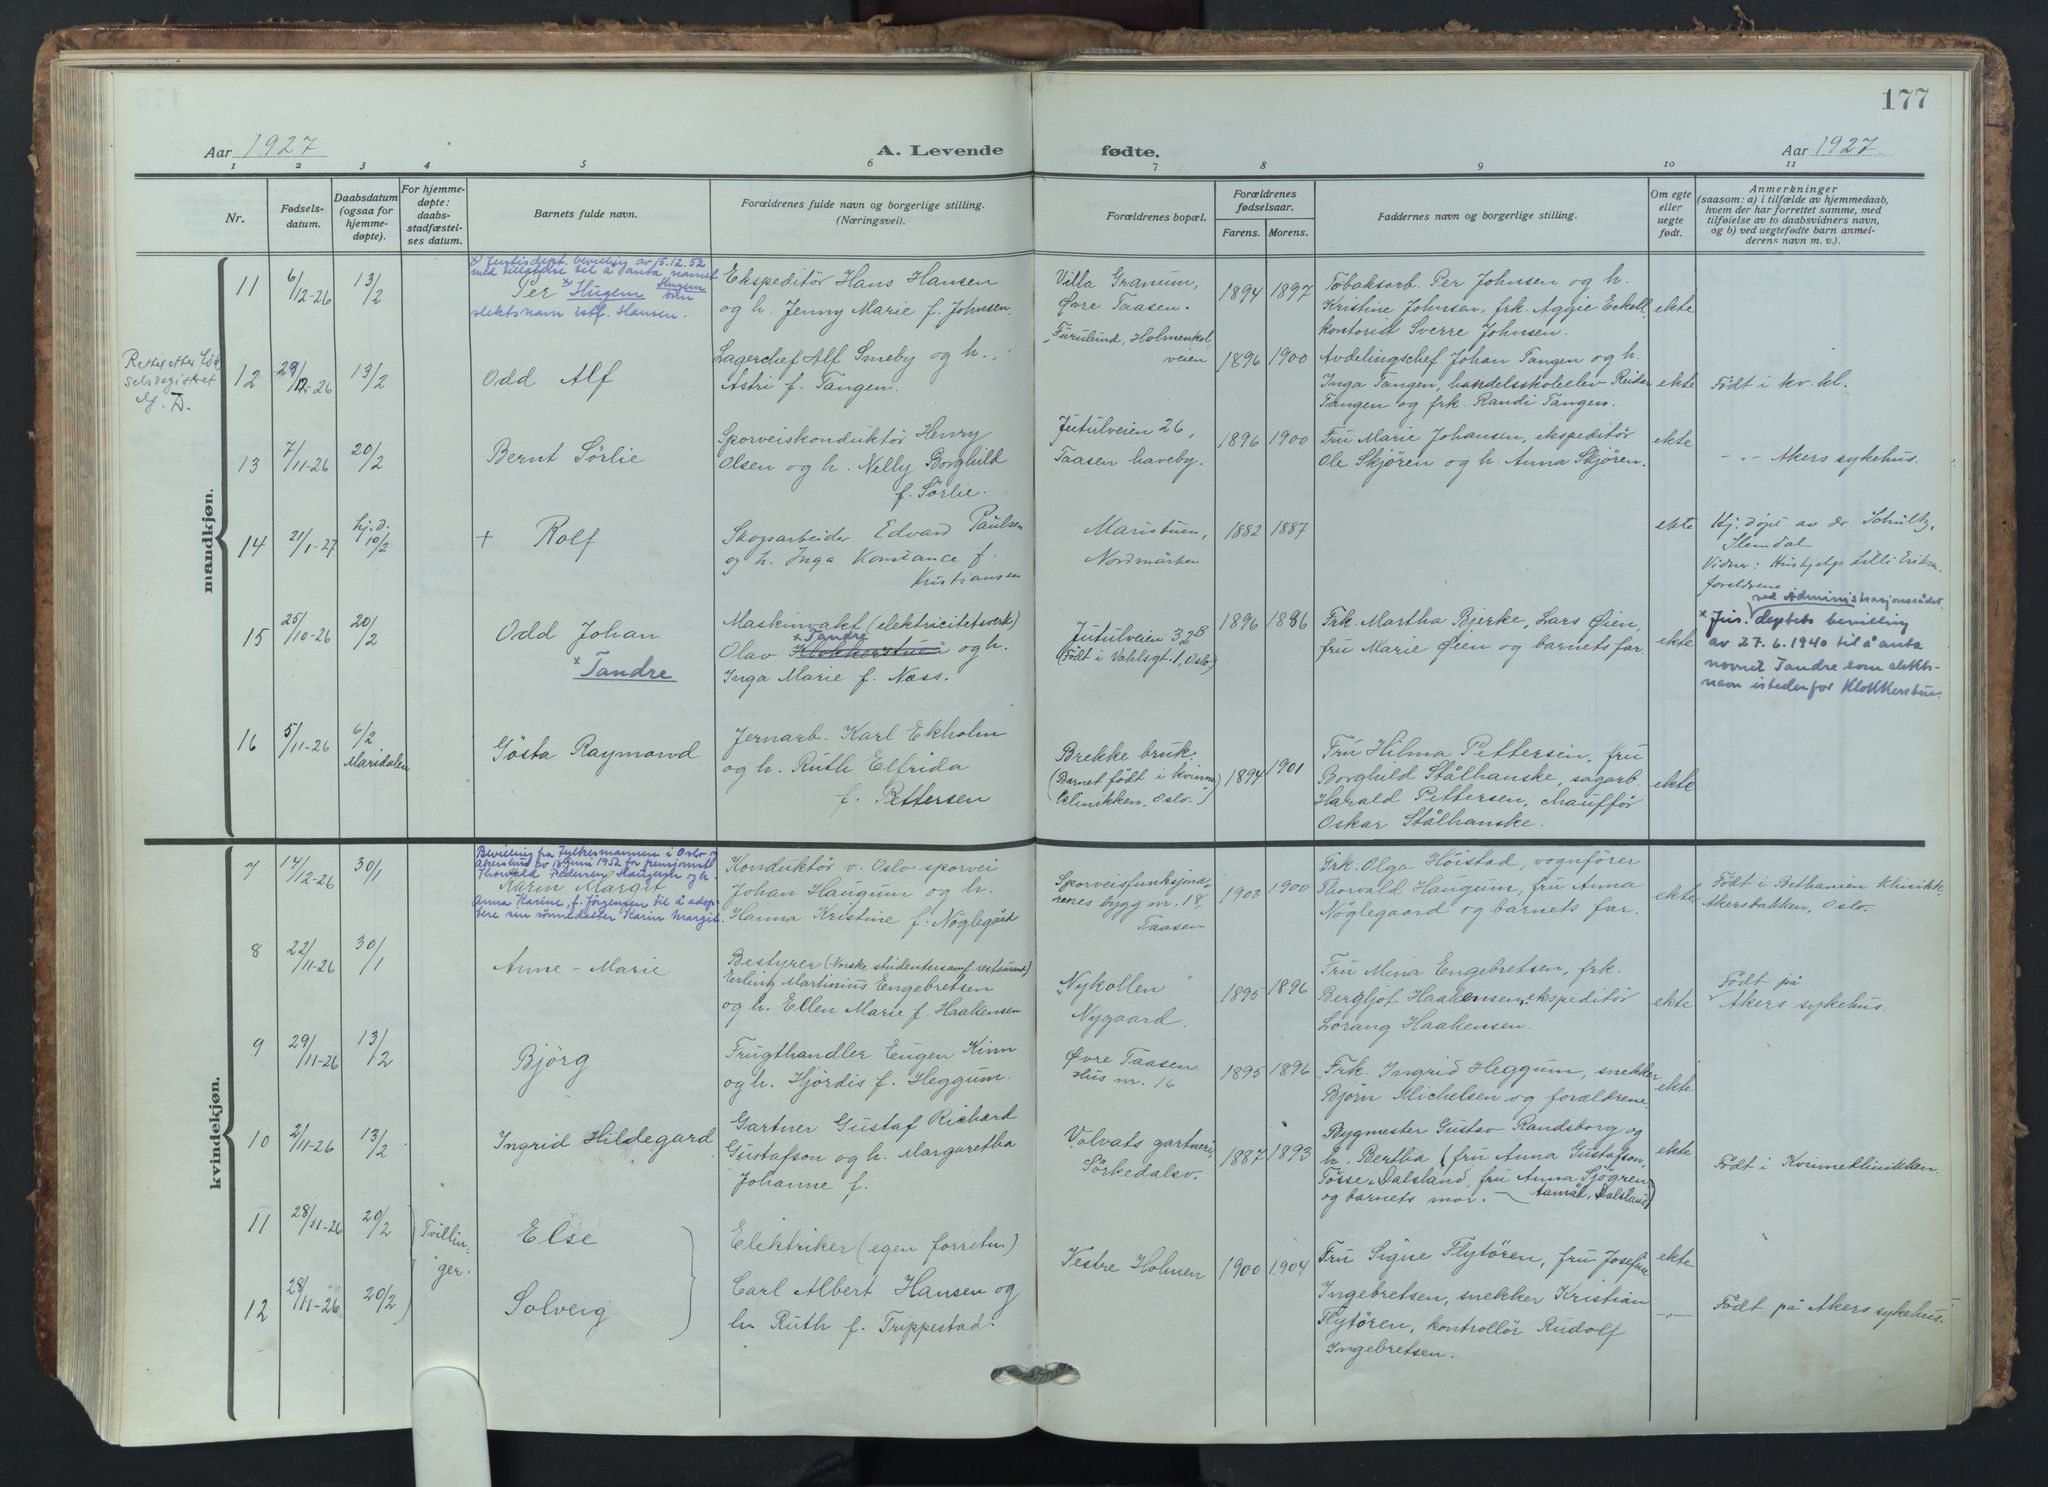 177
Aar 1927
A. Levende
fødte.
Aar 1927.
1 2 3 4 5 6 7 8 9 10 11
Nr.
Fødsels-
datum.
Daabsdatum
(ogsaa for
hjemme-
døpte).
For hjemme-
døpte:
daabs-
stadfæstel-
ses datum.
Barnets fulde navn.
Forældrenes fulde navn og borgerlige stilling.
(Næringsvei).
Forældrenes bopæl.
Forældrenes
fødselsaar.
Farens. Morens.
Faddernes navn og borgerlige stilling.
Om egte
eller
uegte
født.
Anmerkninger
(saasom: a) i tilfælde av hjemmedaab,
hvem der har forrettet samme, med
tilføielse av to daabsvidners navn,
og b) ved uegtefødte barn anmel-
derens navn m. v.).
mandkjøn.
11
6/12-26
13/2
x) Justisdept. bevilling av 15.12.52
med tillatelse til å anta navnet
Per x Hugem Hugem
slektsnavn istf. Hansen.
Ekspeditör Hans Hansen
og h. Jenny Marie f. Johnsen.
Villa Granum,
Øvre Taasen.
1894 1897
Tobaksarb. Per Johnsen og h.
Kristine Johnsen, frk. Aggie Eckoll,
kontorist Sverre Johnsen.
ekte
Rettet etter fød
selsregistret
12
29/12-26
13/2
Odd Alf
Lagerchef Alf Smeby og h.
Astri f. Tangen.
"Furulund, Holmenkol-
veien
1896 1900
Avdelingschef Johan Tangen og h.
Inga Tangen, handelsskoleelev Reidar
Tangen og frk. Randi Tangen.
ekte
Född i kv. kl.
13
7/11-26
20/2
Bernt Sørlie
Sporveiskonduktör Henry
Olsen og h. Nelly Borghild
f. Sørlie.
Jutulveien 26,
Taasen haveby.
1896 1900
Fru Marie Johansen, ekspeditör
Ole Skjören og h. Anna Skjören.
ekte
- " - Akers sykehus.
14
21/1-27
hj.d.
10/2
+ Rolf
Skogsarbeider Edvard Paulsen
og h. Inga Konstance f.
Kristiansen
Maristuen,
Nordmarken
1882 1887
ekte
Hj. døpt av dr. Schultz,
Slemdal
Vidner: Hushjelp Lilli Eriksen
foreldrene
15
25/10-26
20/2
Odd Johan
x Tandre
Maskinvakt (elektricitetsverk)
x Tandre
Olav Klokkerstuen og h.
Inga Marie f. Næss.
Jutulveien 32B
(Født i Vahlsgt. 1, Oslo)
1896 1886
Frk. Martha Bjerke, Lars Øien,
fru Marie Øien og barnets far.
ekte
ved Administrasjonsrådet
x Jus. deptets bevilling
av 27.6.1940 til å anta
navnet Tandre som slekts-
navn istedenfor Klokkerstuen.
16
5/11-26
6/2
Maridalen
Gösta Raymond
Jernarb. Karl Ekholm
og h. Ruth Elfrida
f. Pettersen
Brekke bruk.
(Barnet född i kvinne
klinikken, Oslo.)
1894 1901
Fru Hilma Pettersen, fru
Borghild Stålhanske, sagarb.
Harald Pettersen, chaufför
Oskar Stålhanske.
ekte
kvindekjøn.
7
14/12-26
30/1
Bevilling fra Fylkesmannen i Oslo og
Akershus av 18 juni 1952 for pensjonist
Thorvald Pedersen Haugum og h.
Karin Margit
Anna Karine, f. Jørgensen til å adop-
tere sin sønnedatter Karin Margit
Konduktör v. Oslo sporvei
Johan Haugum og h.
Hanna Kristine f. Nöglegård
Sporveisfunksjonæ-
renes bygg nr. 18,
Taasen
1903 1900
Frk. Olga Höistad, vognförer
Thorvald Haugum, fru Anna
Nöglegaard og barnets far.
ekte
Født i Bethanien klinikk
Akersbakken, Oslo.
8
22/11-26
30/1
Anne-Marie
Bestyrer (Norske studentersamf. restaurant)
Erling Martinius Engebretsen
og h. Ellen Marie f. Haakensen
"Nykollen
Nygaard.
1895 1896
Fru Mina Engebretsen, frk.
Bergljot Haakensen, ekspeditör
Lorang Haakensen.
ekte
Född på
Akers sykehus.
9
29/11-26
13/2
Björg
Frugthandler Eugen Kinn
og h. Hjördis f. Heggum.
Øvre Taasen
Hus nr. 16
1895 1896
Frk. Ingrid Heggum, snekker
Björn Michelsen og forældrene.
ekte
10
2/11-26
13/2
Ingrid Hildegard
Gartner Gustaf Richard
Gustafson og h. Margaretha
Johanne f.
Volvats gartneri,
Sörkedalsv.
1887 1893
Bygmester Gustav Randsborg og
h. Bertha (fru Anna Gustafson,
Tösse, Dalsland, fru Anna Sjögren
og barnets mor. — Aamål, Dalsland)
ekte
Född i Kvinneklinikken.
11
28/11-26
20/2
Tvillin-
ger.
Else
Elektriker (egen forretn.)
Vestre Holmen
1900 1904
Fru Signe Flytören, fru Josefine
ekte
12
28/11-26
20/2
Solveig
Carl Albert Hansen og
h. Ruth f. Trippestad.
Ingebretsen, snekker Kristian
Flytören, kontrollör Rudolf
Ingebretsen.
-"-
Född på Akers sykehus.